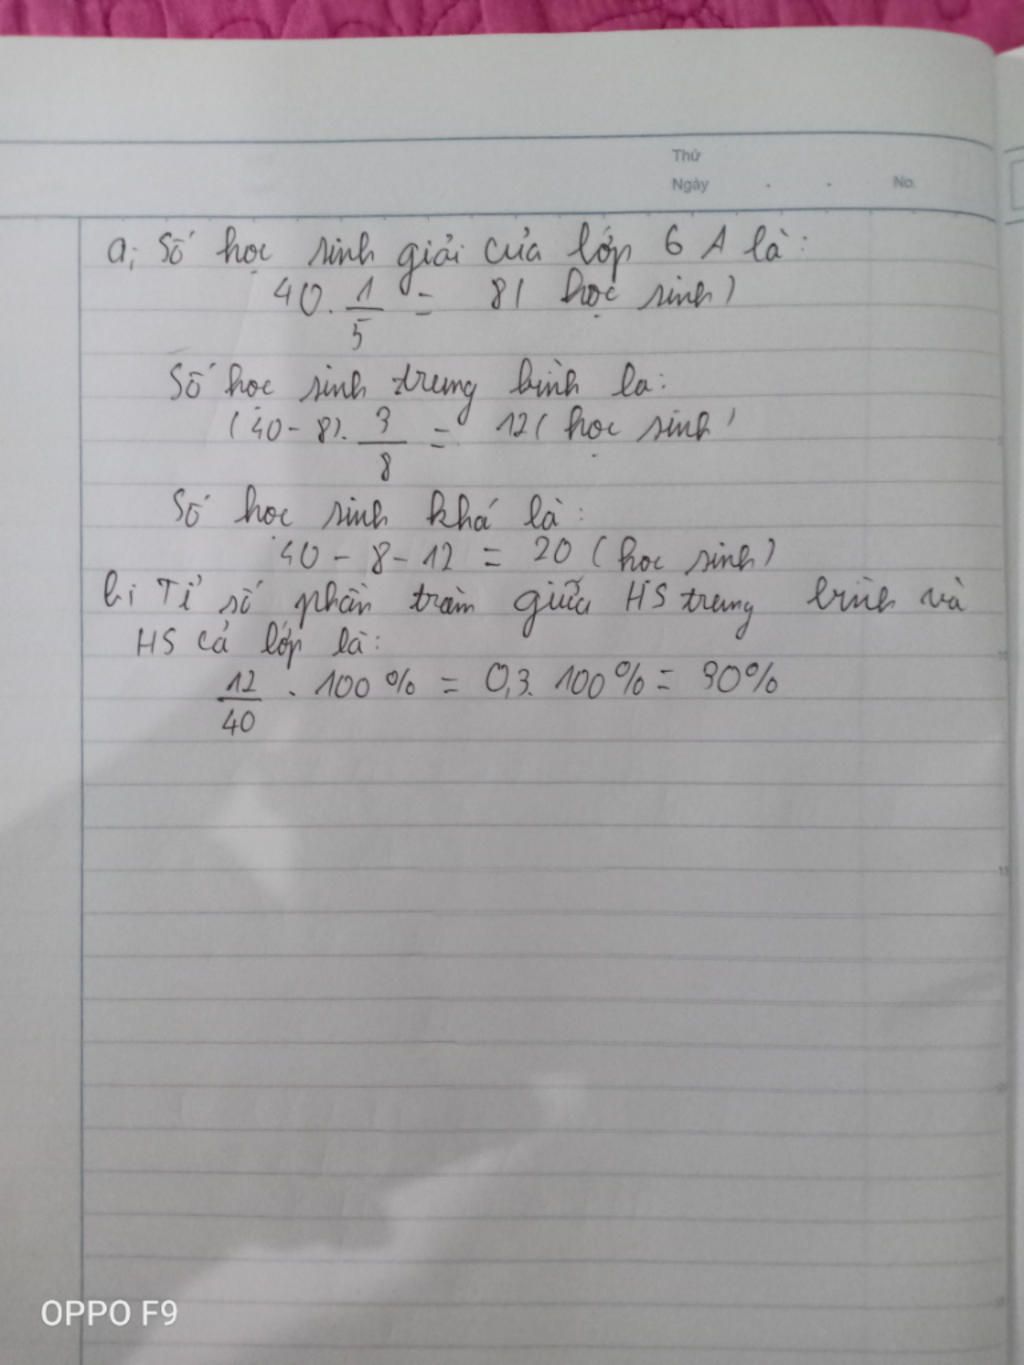 Thứ
Ngày . . No.
a; Số học sinh giỏi của lớp 6 A là:
40 . 1/5 = 8( học sinh)
Số học sinh trung bình la:
(40 - 8). 3/8 = 12( học sinh)
Số học sinh khá là:
40 - 8 - 12 = 20 (học sinh)
b; Tỉ số phần trăm giữa HS trung bình và
HS cả lớp là:
12/40 . 100% = 0,3. 100% = 30%
OPPO F9